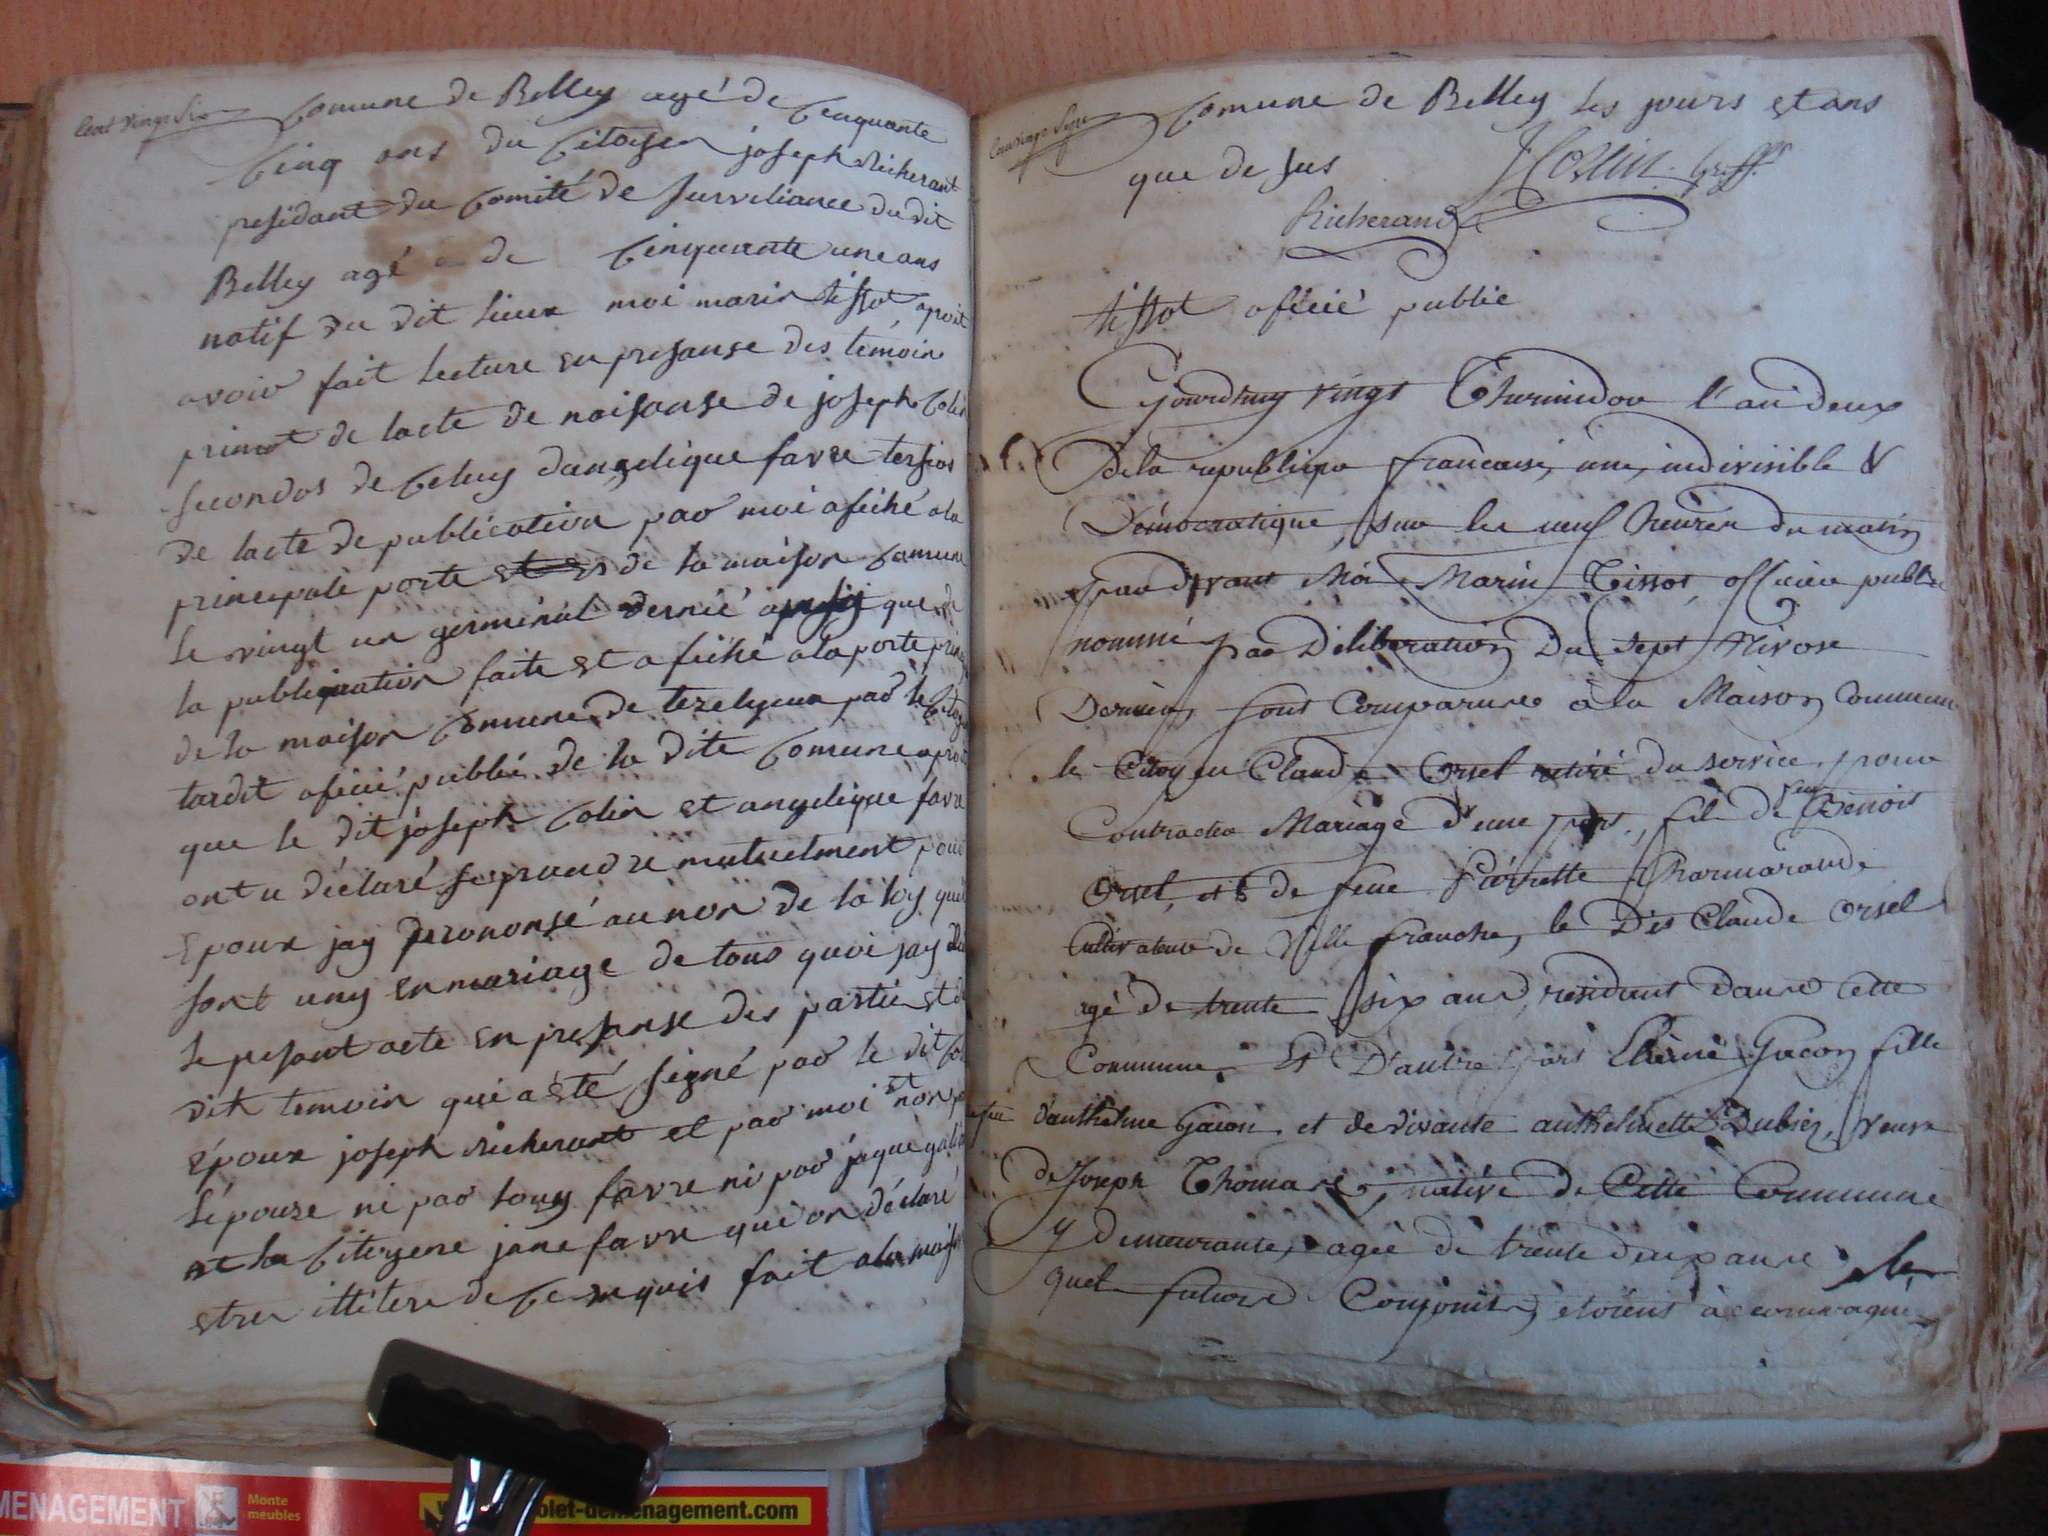 Cent vingt six
Comune de Belley agé de Cenquante
Cinq ans du Citoyen joseph Richerant
presidant du Comité de Surveliance du dit
Belley agé de Cinquante une ans
natif du dit lieux moi marin tissot aprait
avoir fait lecture en presanse des témoin
primot de lacte de naisanse de joseph Colin
secondos de Celuy dangelique favre tersios
de lacte de publication par moi afiché ala
principale porte de la maison Comune
le vingt un germinal dernié que
la publiquation faite et afiché ala porte
de la maison Comune de par le Citoye
tardit oficié publié de la dite Comune apret
que le dit joseph Colin et angelique favre
ont u déclaré se prandre mutuelment pour
Epoux jay prononsé au nom de la loy quil
sont uny en mariage de tous quoi jay
le presant acte en presanse des partie et
dit temoin qui a eté signé par le dit Col
époux joseph Richerant et par moi et non
lépouse ni par louy favre ni par jaque
et la Citoyene jane favre qui on déclaré
etre ilétere de Ce requis fait ala maison
Comune de Belley les jours et ans
que de sus JColin greff.
Richerand
tissot oficié public
Cejourdhuy vingt Thermidor l'an deux
De la republique francaise, une, indivisible &
Démocratique, sur les neuf heures du matin
par devant Moi Marin Tissot, officier public
nommé par Déliberation Du sept Nivose
Dernier, sont Comparus à la Maison Commune
le Citoyen Claude Orsel retiré du service, pour
Contracter Mariage d'une part, fils de feu Benoit
Orsel, et de feue Pierrette Charmarande
Cultivateur de Ville franche, le Dit Claude Orsel
agé de trente six ans residant dans cette
Commune. Et D'autre part Gacon fille
feu d'anthelme Gacon, et de vivante anthelmette Dubiez, veuve
de Joseph Thomas, native de Cette Commune
y demeurante, agée de trente deux ans les
quels futurs Conjoints étoient accompagné
MENAGEMENT
Monte
meubles
olet-demenagement.com